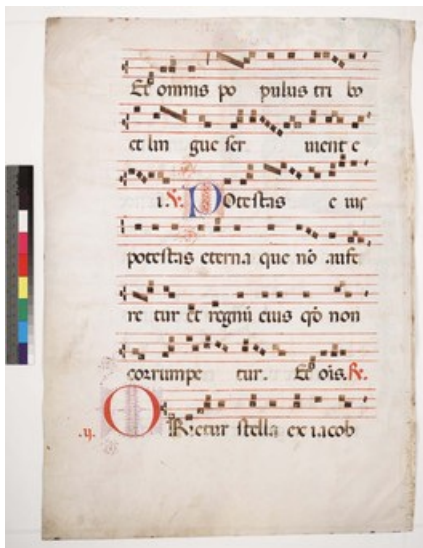 Et omnis po pulus tri bo
et lin gue ser uient e
i. ℣. Potestas e ius
potestas eterna que nõ aufe
re tur et regnũ eius qõ non
corrumpe tur. Et oĩs. ℟.
ij. ORietur stella ex iacob